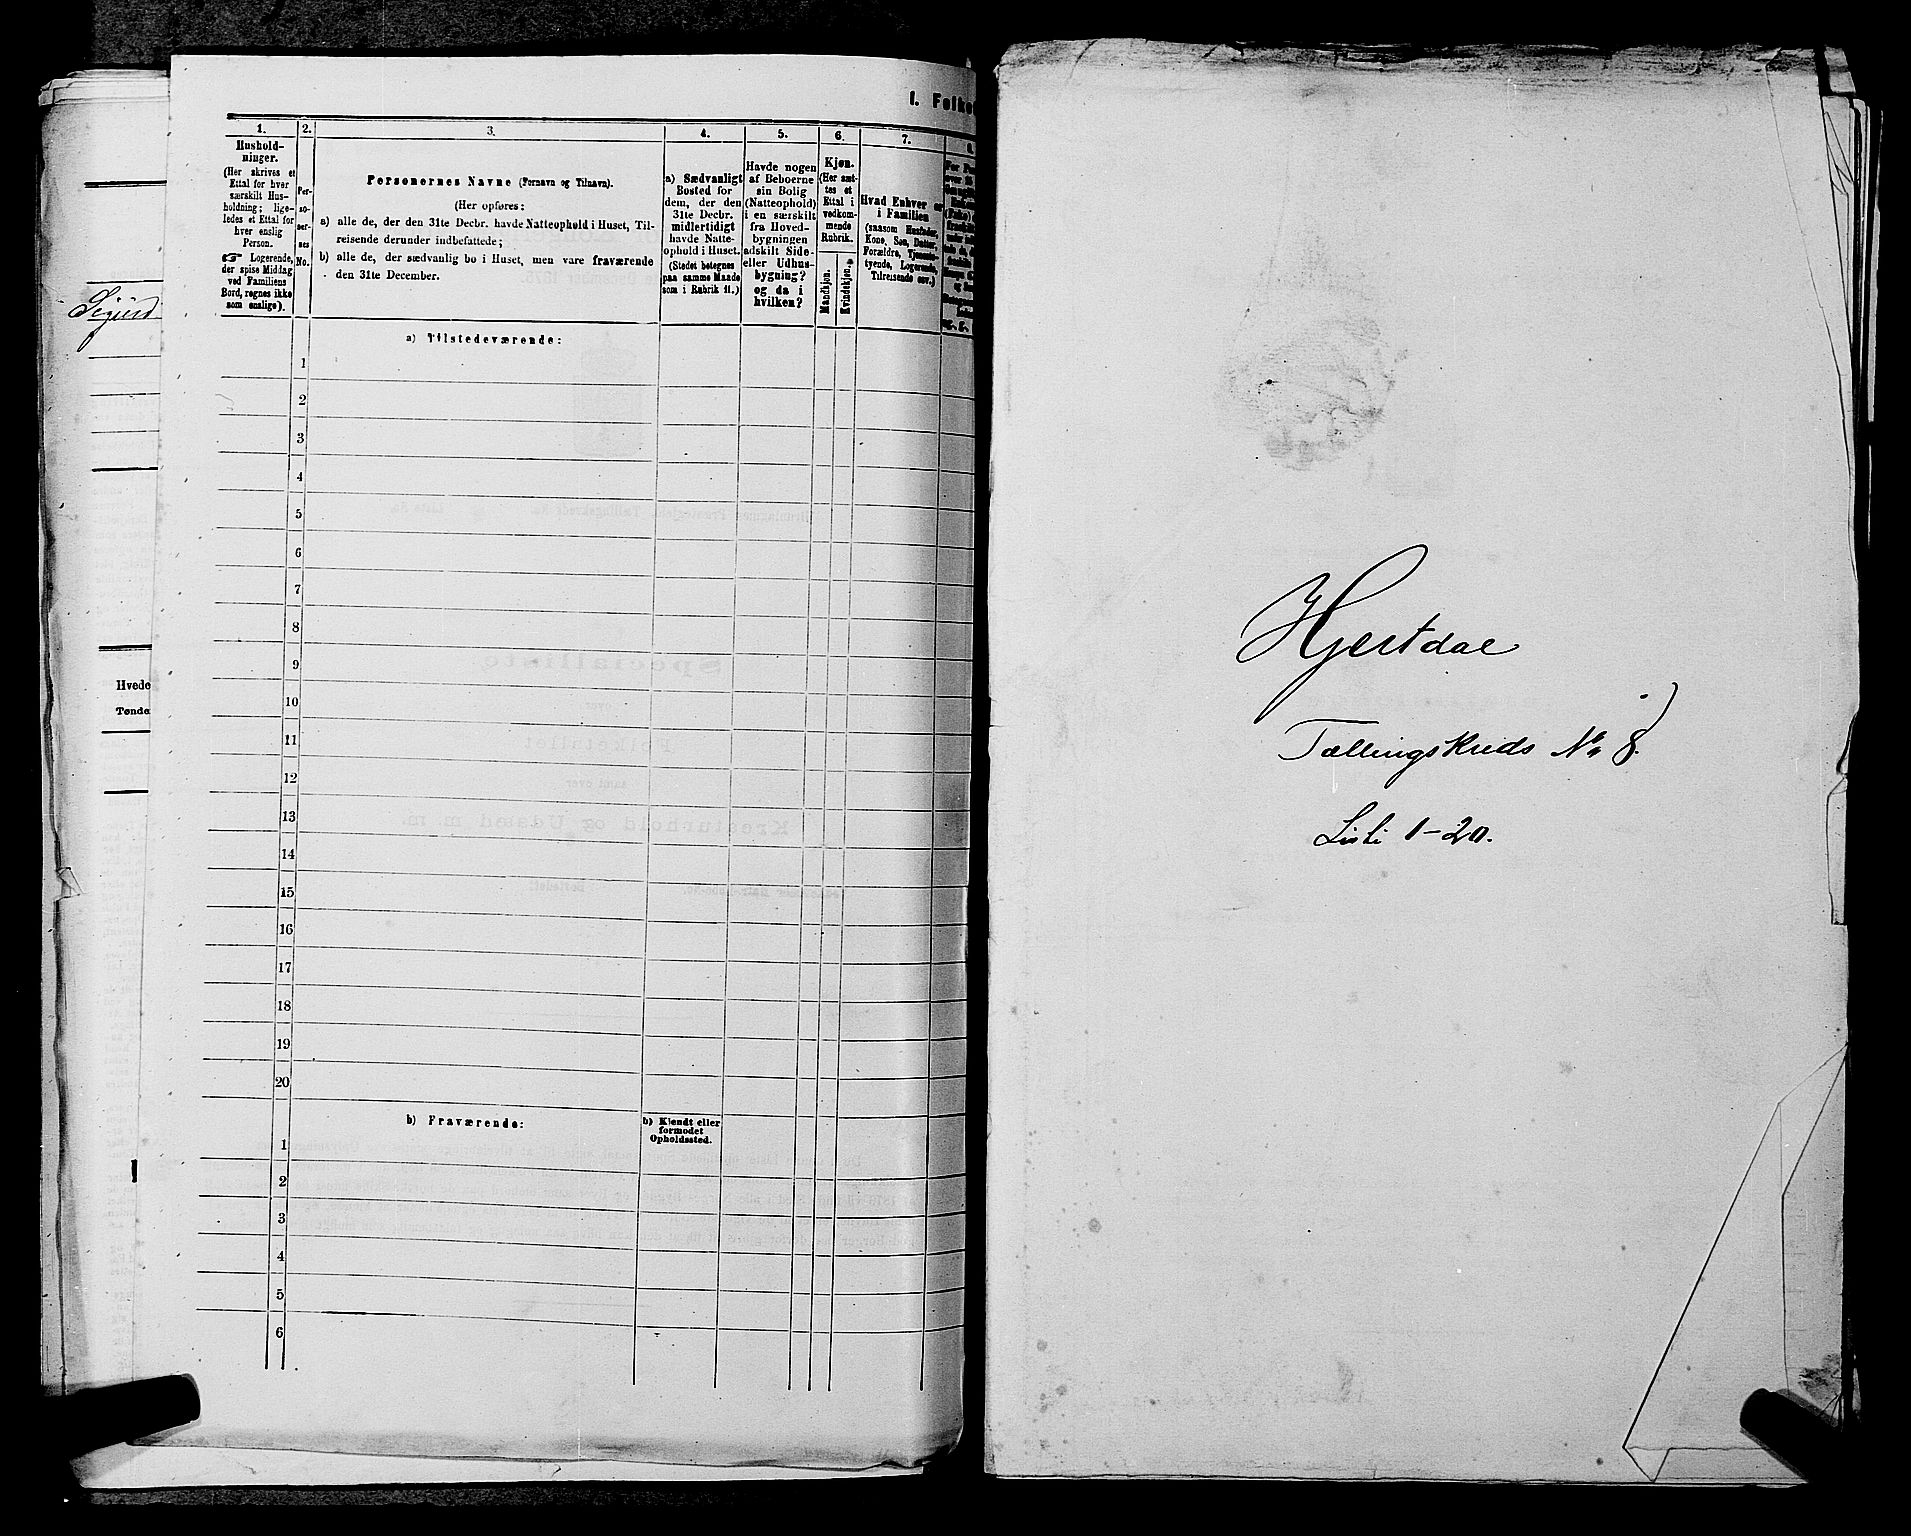 Sigurd
Hvede
Tønder
I. Folke
1.
Hushold-
ninger.
(Her skrives et
Ettal for hver
særskilt Hus-
holdning; lige-
ledes et Ettal for
hver enslig
Person.
☞ Logerende,
der spise Middag
ved Familiens
Bord, regnes ikke
som enslige).
2.
Per-
so-
ner-
nes
No.
3.
Personernes Navne (Fornavn og Tilnavn).
(Her opføres:
a) alle de, der den 31te Decbr. havde Natteophold i Huset, Til-
reisende derunder indbefattede;
b) alle de, der sædvanlig bo i Huset, men vare fraværende
den 31te December.
4.
a) Sædvanligt
Bosted for
dem, der den
31te Decbr.
midlertidigt
havde Natte-
ophold i Huset.
(Stedet betegnes
paa samme Maade
som i Rubrik 11.)
5.
Havde nogen
af Beboerne
sin Bolig
(Natteophold)
i en særskilt
fra Hoved-
bygningen
adskilt Side-
eller Udhus-
bygning?
og da i
hvilken?
6.
Kjøn.
(Her sæt-
tes et
Ettal i
vedkom-
mende
Rubrik.
Mandkjøn.
Kvindekjøn.
7.
Hvad Enhver er
i Familien
(saasom Husfader,
Kone, Søn, Datter,
Forældre, Tjeneste-
tyende, Logerende,
Tilreisende osv.)
8.
a) Tilstedeværende:
1
2
3
4
5
6
7
8
9
10
11
12
13
14
15
16
17
18
19
20
b) Fraværende:
b) Kjendt eller
formodet
Opholdssted.
1
2
3
4
5
6
Hjertdal
Tællingskreds No 8.
Liste 1-20.